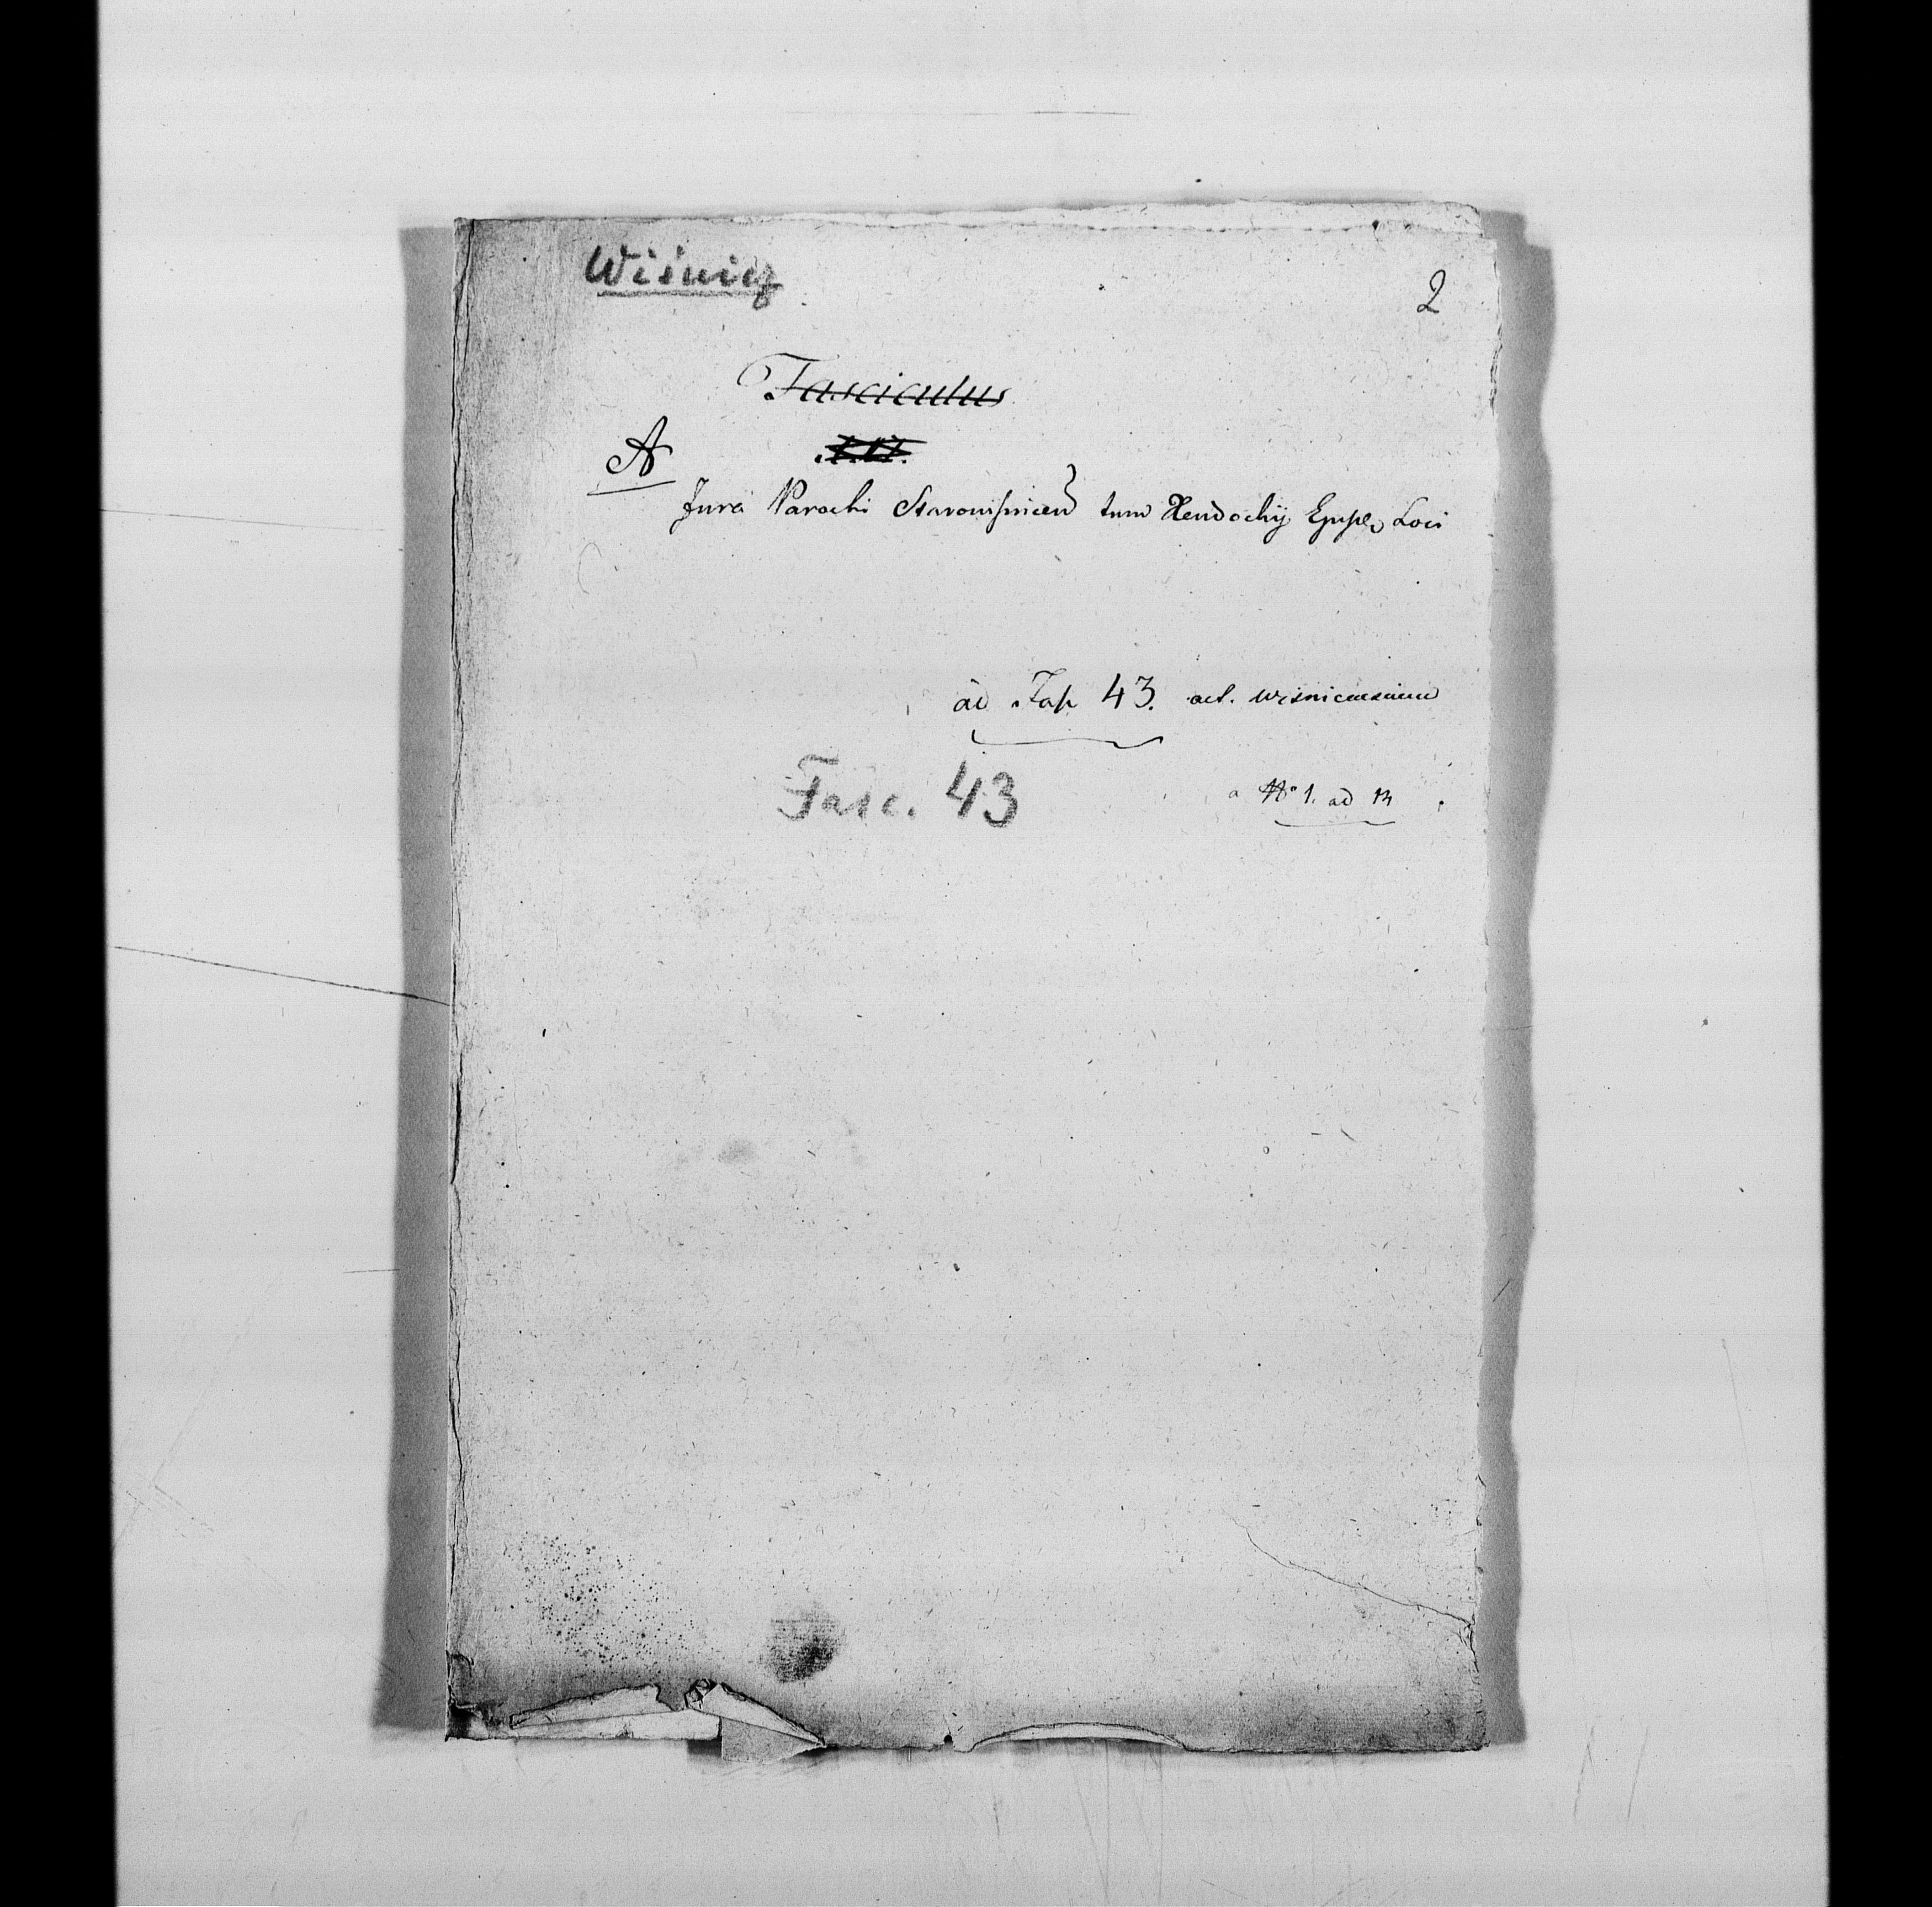 Wiśnicz
2
Fasciculus
A
Jura Parochi Starowisnicen tum Xendochij Ejusdem Loci
ad Fasc 43. act. Wisnicensium
Fasc. 43
a No 1. ad 13